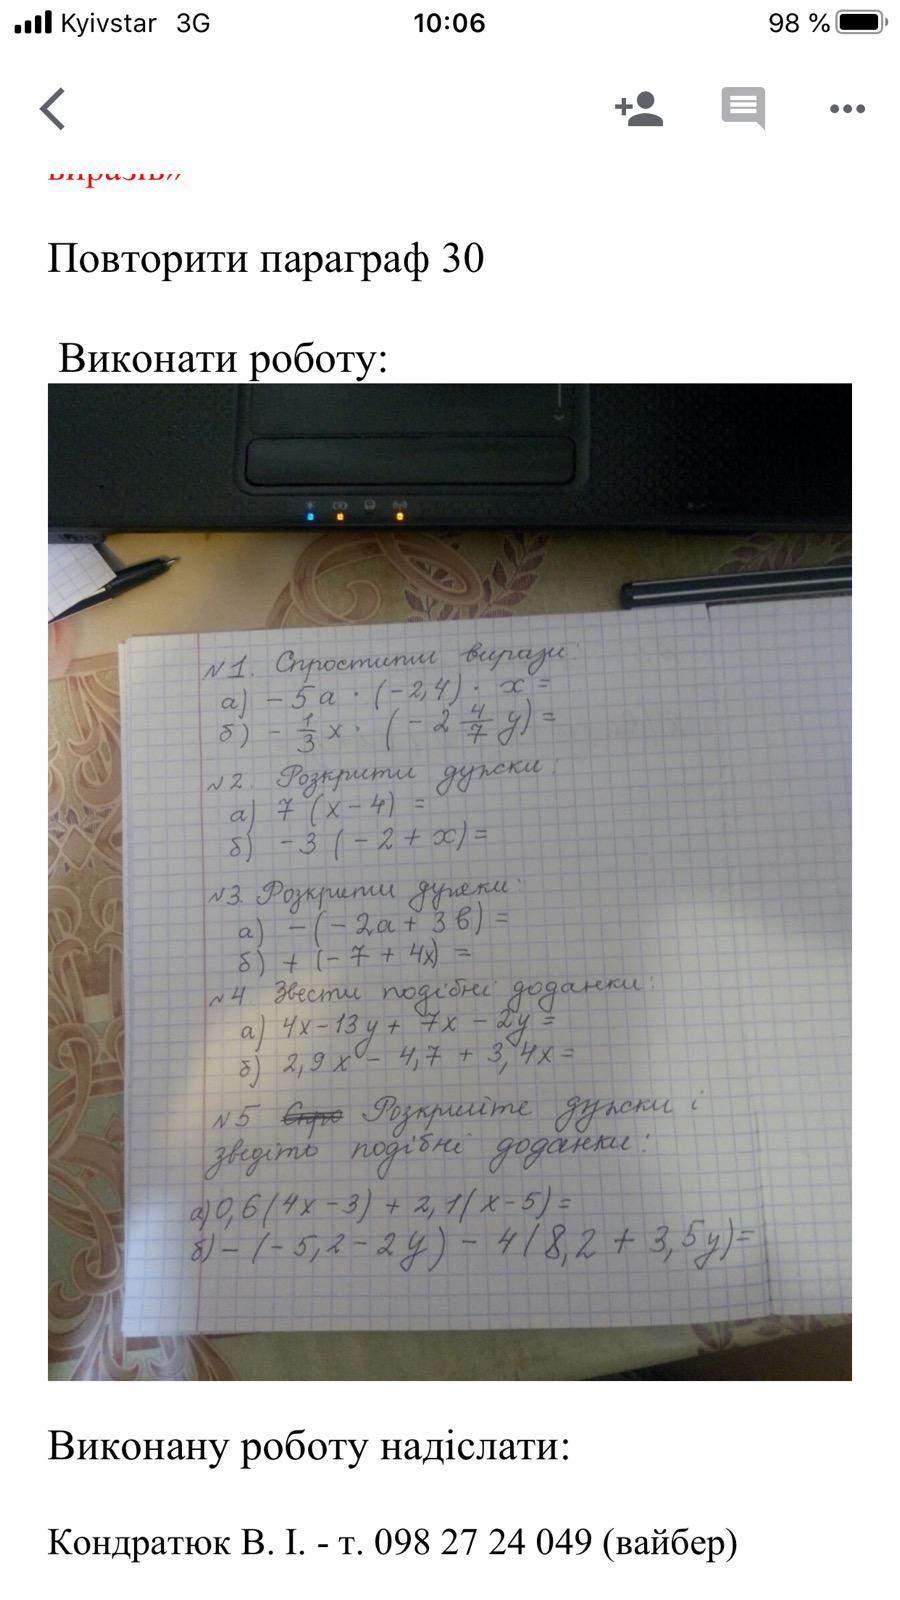 Kyivstar 3G 10:06 98 %
виразів»
Повторити параграф 30
Виконати роботу:
№1. Спростити вирази:
а) - 5a · (-2,4) · x =
б) - 1/3 x · (- 2 4/7 y) =
№2. Розкрити дужки:
а) 7 (x - 4) =
б) -3 (- 2 + x) =
№3. Розкрити дужки:
а) - (- 2a + 3в) =
б) + (- 7 + 4x) =
№4. Звести подібні доданки:
а) 4x - 13y + 7x - 2y =
б) 2,9x - 4,7 + 3,4x =
№5 Спро Розкрийте дужки і
зведіть подібні доданки:
а) 0,6(4x - 3) + 2,1(x - 5) =
б) - (- 5,2 - 2y) - 4(8,2 + 3,5y) =
Виконану роботу надіслати:
Кондратюк В. І. - т. 098 27 24 049 (вайбер)